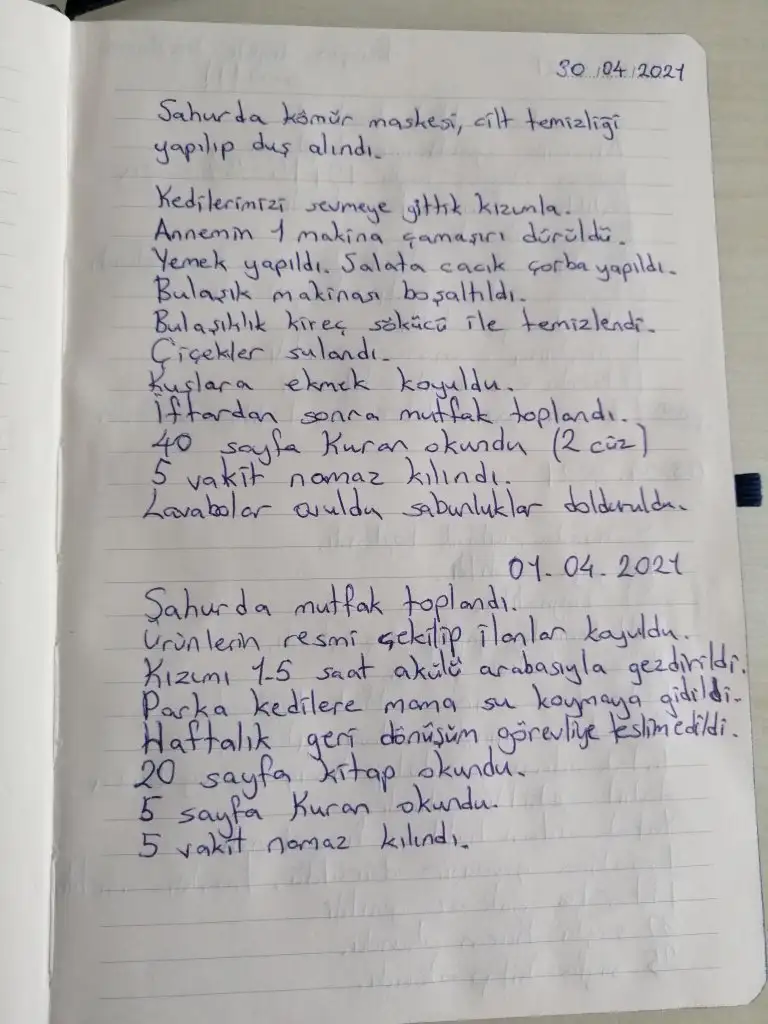 30.04.2021
Sahurda kömür maskesi, cilt temizliği
yapılıp duş alındı.
Kedilerimizi sevmeye gittik kızımla.
Annemin 1 makina çamaşırı dürüldü.
Yemek yapıldı. Salata cacık çorba yapıldı.
Bulaşık makinası boşaltıldı.
Bulaşıklık kireç sökücü ile temizlendi.
Çiçekler sulandı.
Kuşlara ekmek koyuldu.
İftardan sonra mutfak toplandı.
40 sayfa Kuran okundu (2 cüz)
5 vakit namaz kılındı.
Lavabolar ovuldu sabunluklar dolduruldu.
01.04.2021
Sahurda mutfak toplandı.
Ürünlerin resmi çekilip ilanlar koyuldu.
Kızımı 1.5 saat akülü arabasıyla gezdirildi.
Parka kedilere mama su koymaya gidildi.
Haftalık geri dönüşüm görevliye teslim edildi.
20 sayfa kitap okundu.
5 sayfa Kuran okundu.
5 vakit namaz kılındı.